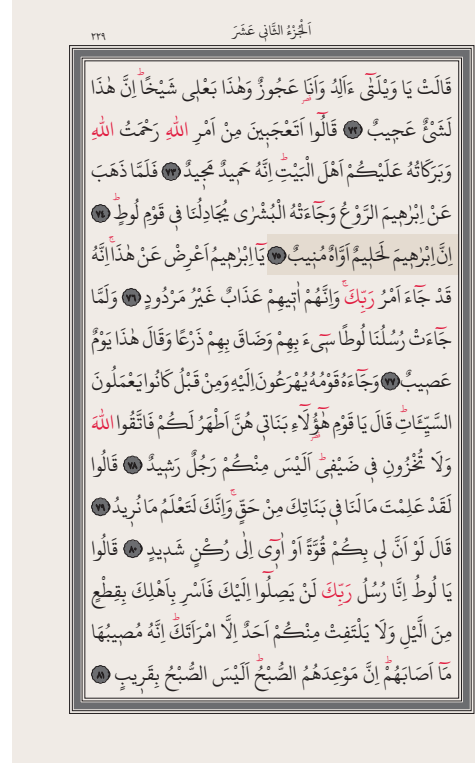 اَلْجُزْءُ الثَّانِي عَشَرَ
٢٢٩
قَالَتْ يَا وَيْلَتٰٓى ءَاَلِدُ وَاَنَا۬ عَجُوزٌ وَهٰذَا بَعْلٖى شَيْخًاۜ اِنَّ هٰذَا
لَشَىْءٌ عَجٖيبٌ ﴿٧٢﴾ قَالُٓوا اَتَعْجَبٖينَ مِنْ اَمْرِ اللّٰهِ رَحْمَتُ اللّٰهِ
وَبَرَكَاتُهُ عَلَيْكُمْ اَهْلَ الْبَيْتِۜ اِنَّهُ حَمٖيدٌ مَجٖيدٌ ﴿٧٣﴾ فَلَمَّا ذَهَبَ
عَنْ اِبْرٰهٖيمَ الرَّوْعُ وَجَٓاءَتْهُ الْبُشْرٰى يُجَادِلُنَا فٖى قَوْمِ لُوطٍۜ ﴿٧٤﴾
اِنَّ اِبْرٰهٖيمَ لَحَلٖيمٌ اَوَّاهٌ مُنٖيبٌ ﴿٧٥﴾ يَٓا اِبْرٰهٖيمُ اَعْرِضْ عَنْ هٰذَاۚ اِنَّهُ
قَدْ جَٓاءَ اَمْرُ رَبِّكَۚ وَاِنَّهُمْ اٰتٖيهِمْ عَذَابٌ غَيْرُ مَرْدُودٍ ﴿٧٦﴾ وَلَمَّا
جَٓاءَتْ رُسُلُنَا لُوطًا سٖٓىءَ بِهِمْ وَضَاقَ بِهِمْ ذَرْعًا وَقَالَ هٰذَا يَوْمٌ
عَصٖيبٌ ﴿٧٧﴾ وَجَٓاءَهُ قَوْمُهُ يُهْرَعُونَ اِلَيْهِ وَمِنْ قَبْلُ كَانُوا يَعْمَلُونَ
السَّيِّـَٔاتِۜ قَالَ يَا قَوْمِ هٰٓؤُ۬لَٓاءِ بَنَاتٖى هُنَّ اَطْهَرُ لَكُمْ فَاتَّقُوا اللّٰهَ
وَلَا تُخْزُونِ فٖى ضَيْفٖىۜ اَلَيْسَ مِنْكُمْ رَجُلٌ رَشٖيدٌ ﴿٧٨﴾ قَالُوا
لَقَدْ عَلِمْتَ مَا لَنَا فٖى بَنَاتِكَ مِنْ حَقٍّۚ وَاِنَّكَ لَتَعْلَمُ مَا نُرٖيدُ ﴿٧٩﴾
قَالَ لَوْ اَنَّ لٖى بِكُمْ قُوَّةً اَوْ اٰوٖٓى اِلٰى رُكْنٍ شَدٖيدٍ ﴿٨٠﴾ قَالُوا
يَا لُوطُ اِنَّا رُسُلُ رَبِّكَ لَنْ يَصِلُٓوا اِلَيْكَ فَاَسْرِ بِاَهْلِكَ بِقِطْعٍ
مِنَ الَّيْلِ وَلَا يَلْتَفِتْ مِنْكُمْ اَحَدٌ اِلَّا امْرَاَتَكَۜ اِنَّهُ مُصٖيبُهَا
مَٓا اَصَابَهُمْۜ اِنَّ مَوْعِدَهُمُ الصُّبْحُۜ اَلَيْسَ الصُّبْحُ بِقَرٖيبٍ ﴿٨١﴾